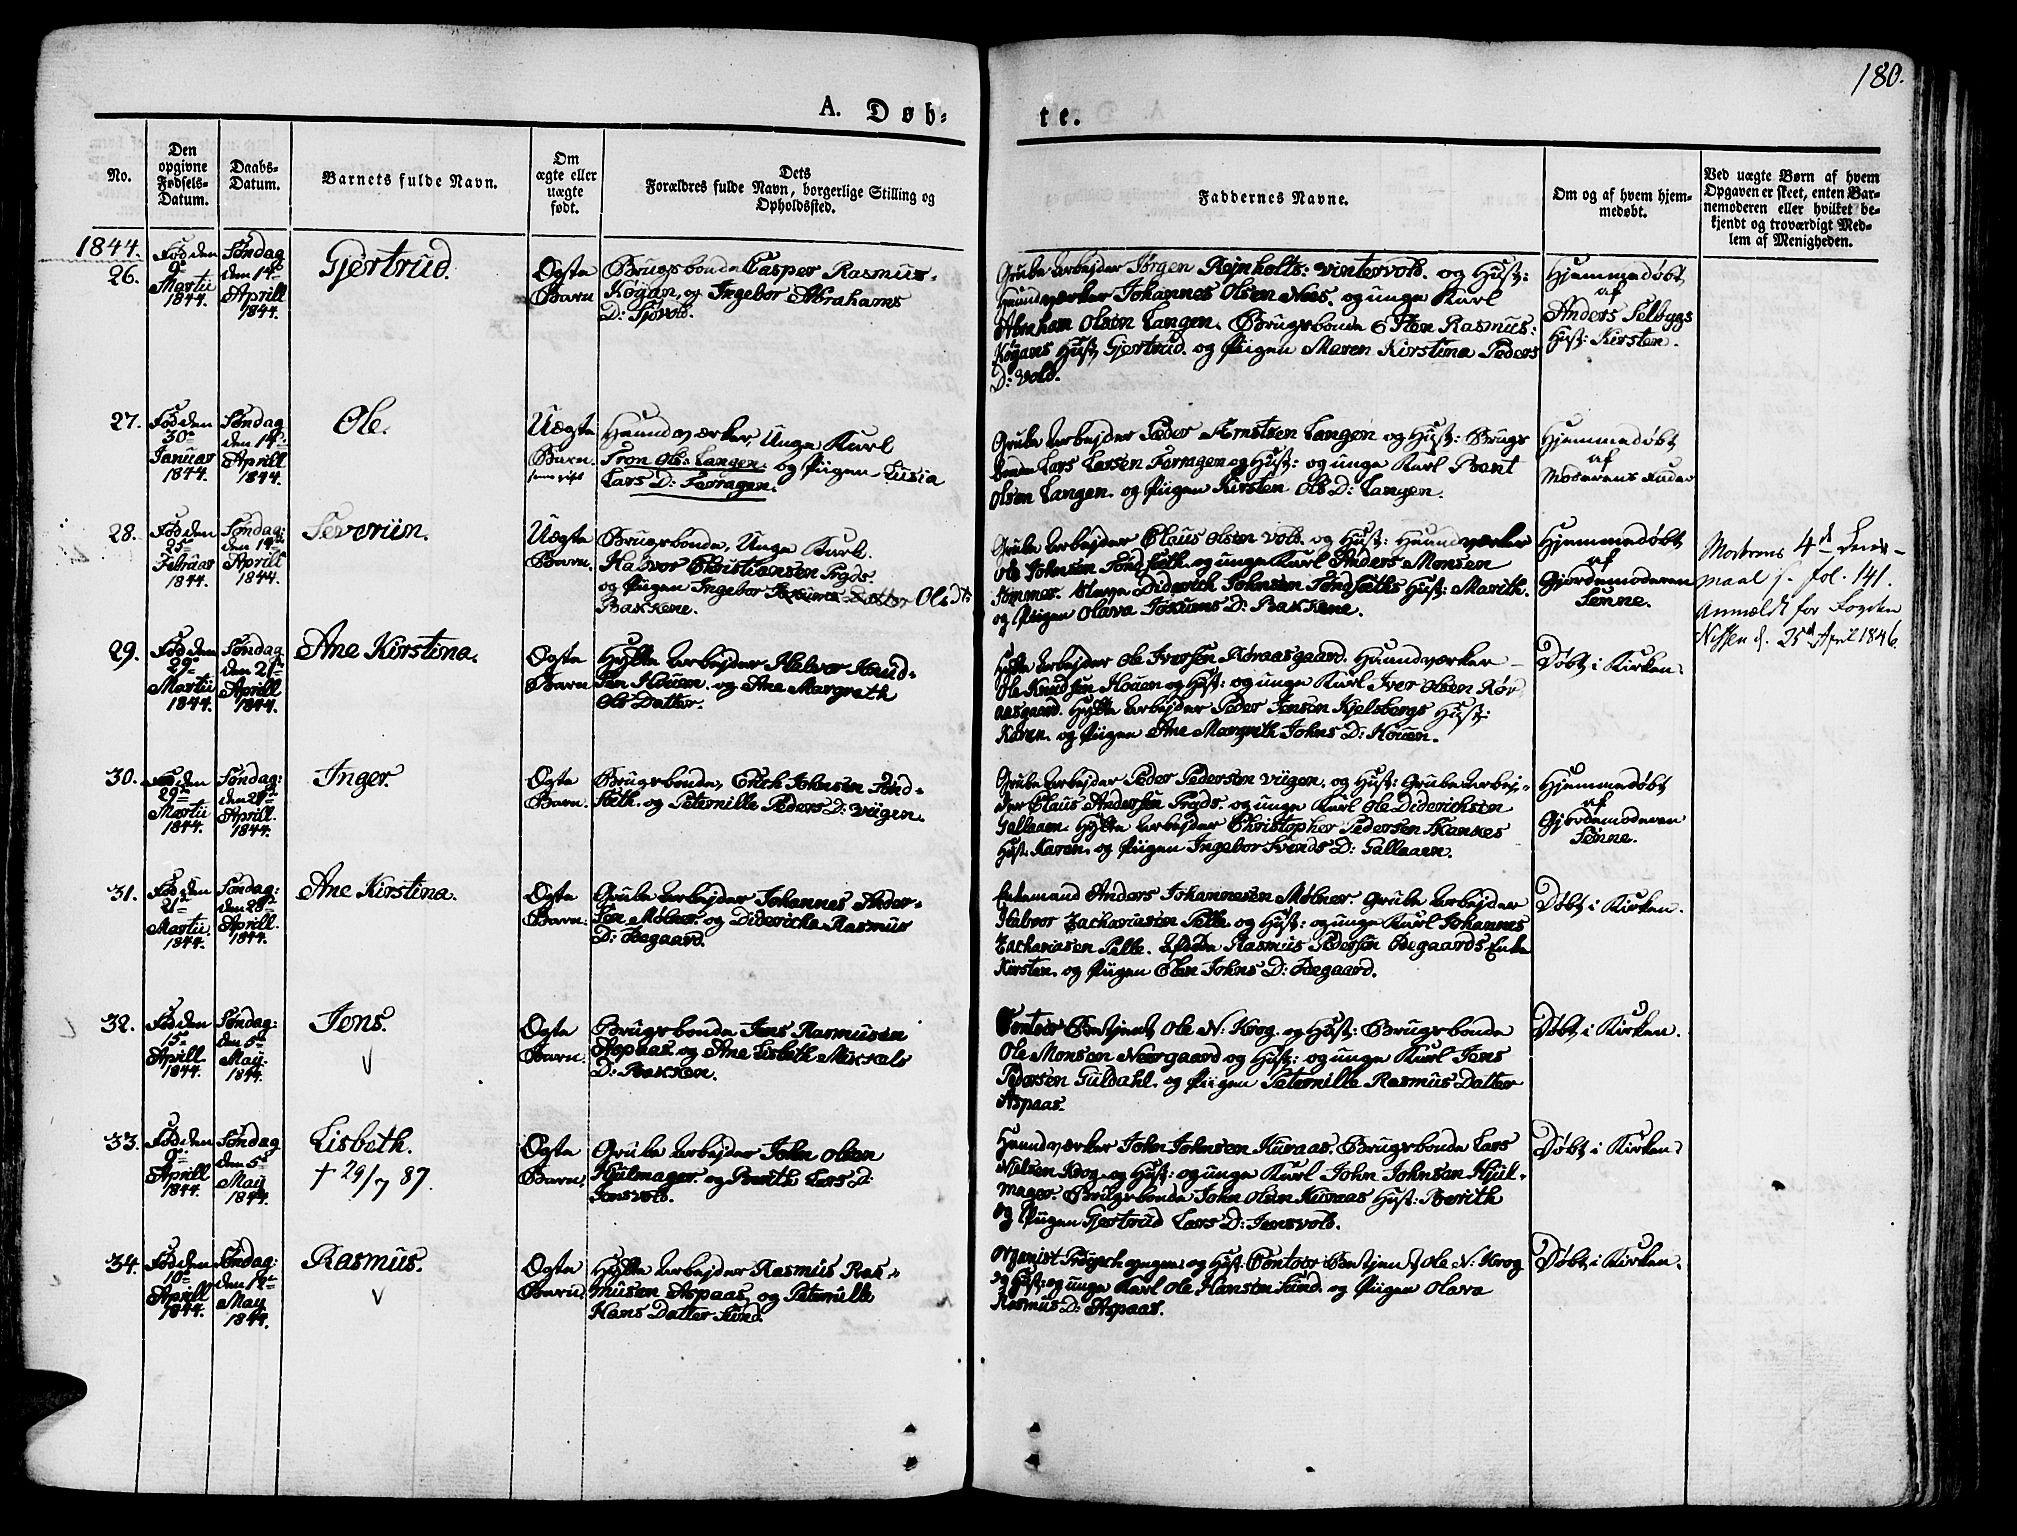 180.
A. Døb-
te.
No.
Den
opgivne
Fødsels-
Datum.
Daabs-
Datum.
Barnets fulde Navn.
Om
ægte eller
uægte
født.
Dets
Forældres fulde Navn, borgerlige Stilling og
Opholdssted.
Faddernes Navne.
Om og af hvem hjem-
medøbt.
Ved uægte Børn af hvem
Opgaven er skeet, enten Bar-
nemoderen eller hvilket be-
kjendt og troværdigt Med-
lem af Menigheden.
1844.
26.
Fød den
9de
Martii
1844.
Søndag
den 14de
Aprill
1844.
Gjertrud.
Ægte
Barn
Brugsbonde Casper Rasmus-
Køgan, og Ingebor Abrahams
D: Sjøvold.
Grube Arbejder Jørgen Rejnholts: Vintervold. og Hust:
Haandværker Johannes Olsen Nees, og unge Karl
Abraham Olsen Langen. Brugsbonde Sten Rasmus:
Køgans Hust: Gjertrud. og Piigen Maren Kirstina Peders
D: Vold.
Hjemmedøbt
af
Anders Selbygs
Hust: Kirsten.
27.
Fød den
30te
Januar
1844.
Søndag
den 14de
Aprill
1844.
Ole.
Uægte
Barn.
Haandværker, Unge Karl
Tron Ols: Langen. og Piigen Lusia
Lars D: Forragen.
Grube Arbejder Peder Arntsen Langen og Hust: Brugs
bonde Lars Larsen Forragen og Hust: og unge Karl Bent
Olsen Langen. og Piigen Kirsten Ols D: Langen.
Hjemmedøbt
af
Moderens Fader
28.
Fød den
25de
Februar
1844.
Søndag:
den 14de
Aprill
1844.
Severiin.
Uægte
Barn.
Brugsbonde, Unge Karl.
Halvor Christiansen Tryds.
og Piigen Ingebor Jokums Datter Ols Dt.
Bakkene.
Grube Arbejder Claus Olsen Vold. og Hust: Haandværker
Ole Johnsen Tøndfælh. og unge Karl Anders Monsen
Sommer. Diderich Johnsen Tøndfælhs Hust: Marith.
og Piigen Olava Jokums D: Bakkene.
Hjemmedøbt
af
Gjordemoderen
Sønne.
Moderens 4de Leier-
maal s. fol. 141.
Anmeldt for Fogden
Nissen d. 25de April 1846.
29.
Fød den
29de
Martii
1844.
Søndag
den 21de
Aprill
1844.
Ane Kirstina.
Ægte
Barn
Hytte Arbejder Halvor Knud-
sen Houen. og Ane Margreth
Ols Datter.
Hytte Arbejder Ole Iversen Røraasgaard. Haandværker
Ole Knudsen Houen og Hust: og unge Karl Iver Olsen Rør
aasgaard. Hytte Arbejder Peder Jensen Kjelsbergs Hust:
Karen. og Piigen Ane Margreth Johns D: Houen.
Døbt i Kirken.
30.
Fød den
29de
Martii
1844.
Søndag:
den 21de
Aprill.
1844.
Inger.
Ægte
Barn.
Brugsbonde, Erich Johnsen Tønd-
fælh. og Peternille Peders D: Viigen.
Grube Arbejder Peder Pedersen Viigen. og Hust: Grube Arbej-
der Claus Andersen Tryds. og unge Karl Ole Diderichsen
Gallaaen. Hytte Arbejder Christopher Pedersen Skankes
Hust. Karen. og Piigen Ingebor Svends D: Gallaaen.
Hjemmedøbt
af
Gjordemoderen
Sønne.
31.
Fød den
21de
Martii
1844.
Søndag:
den 28de
Aprill.
1844.
Ane Kirstina.
Ægte
Barn.
Grube Arbejder Johannes Ander-
sen Mølner. og Diderikka Rasmus
D: Øegaard.
Enkemand Anders Johannesen Mølner. Grube Arbejder
Halvor Zachariasen Selle. og Hust: og unge Karl Johannes
Zachariasen Selle. Afdøde Rasmus Pedersen Øegaards Enke
Kirsten. og Piigen Elen Johns D: Øegaard.
Døbt i Kirken.
32.
Fød den
15de
Aprill
1844.
Søndag:
den 5te
May.
1844.
Jens.
Ægte
Barn.
Brugsbonde Jens Rasmusen
Aspaas. og Ane Lisbeth Mikkels
D: Bakken.
Contoir Betjent Ole N. Krog. og Hust: Brugsbonde
Ole Monsen Norrgaard og Hust: og unge Karl Jens
Pedersen Guldahl. og Piigen Peternille Rasmus Datter
Aspaas.
Døbt i Kirken.
33.
Fød den
9de
Aprill
1844.
Søndag
den 5te
May
1844.
Lisbeth.
† 29/7 87.
Ægte
Barn.
Grube Arbejder John Olsen
Hjulmager. og Berith Lars D:
Jensvold.
Haandværker John Johnsen Kuraas. Brugsbonde Lars
Nielsen Krog. og Hust: og unge Karl John Johnsen Hjul-
mager. Brugsbonde John Olsen Kuraas Hust: Berith
og Piigen Gjertrud Lars D: Jensvold.
Døbt i Kirken.
34.
Fød den
10de
Aprill
1844.
Søndag:
den 12te
May
1844.
Rasmus.
Ægte
Barn.
Hytte Arbejder Rasmus Ras-
musen Aspaas. og Peternille
Hans Datter Sund.
Organist og Hust. Contoir Betjent Ole N. Krog
og Hust: og unge Karl Ole Hansen Sund. og Piigen Olava
Rasmus D: Aspaas.
Døbt i Kirken.